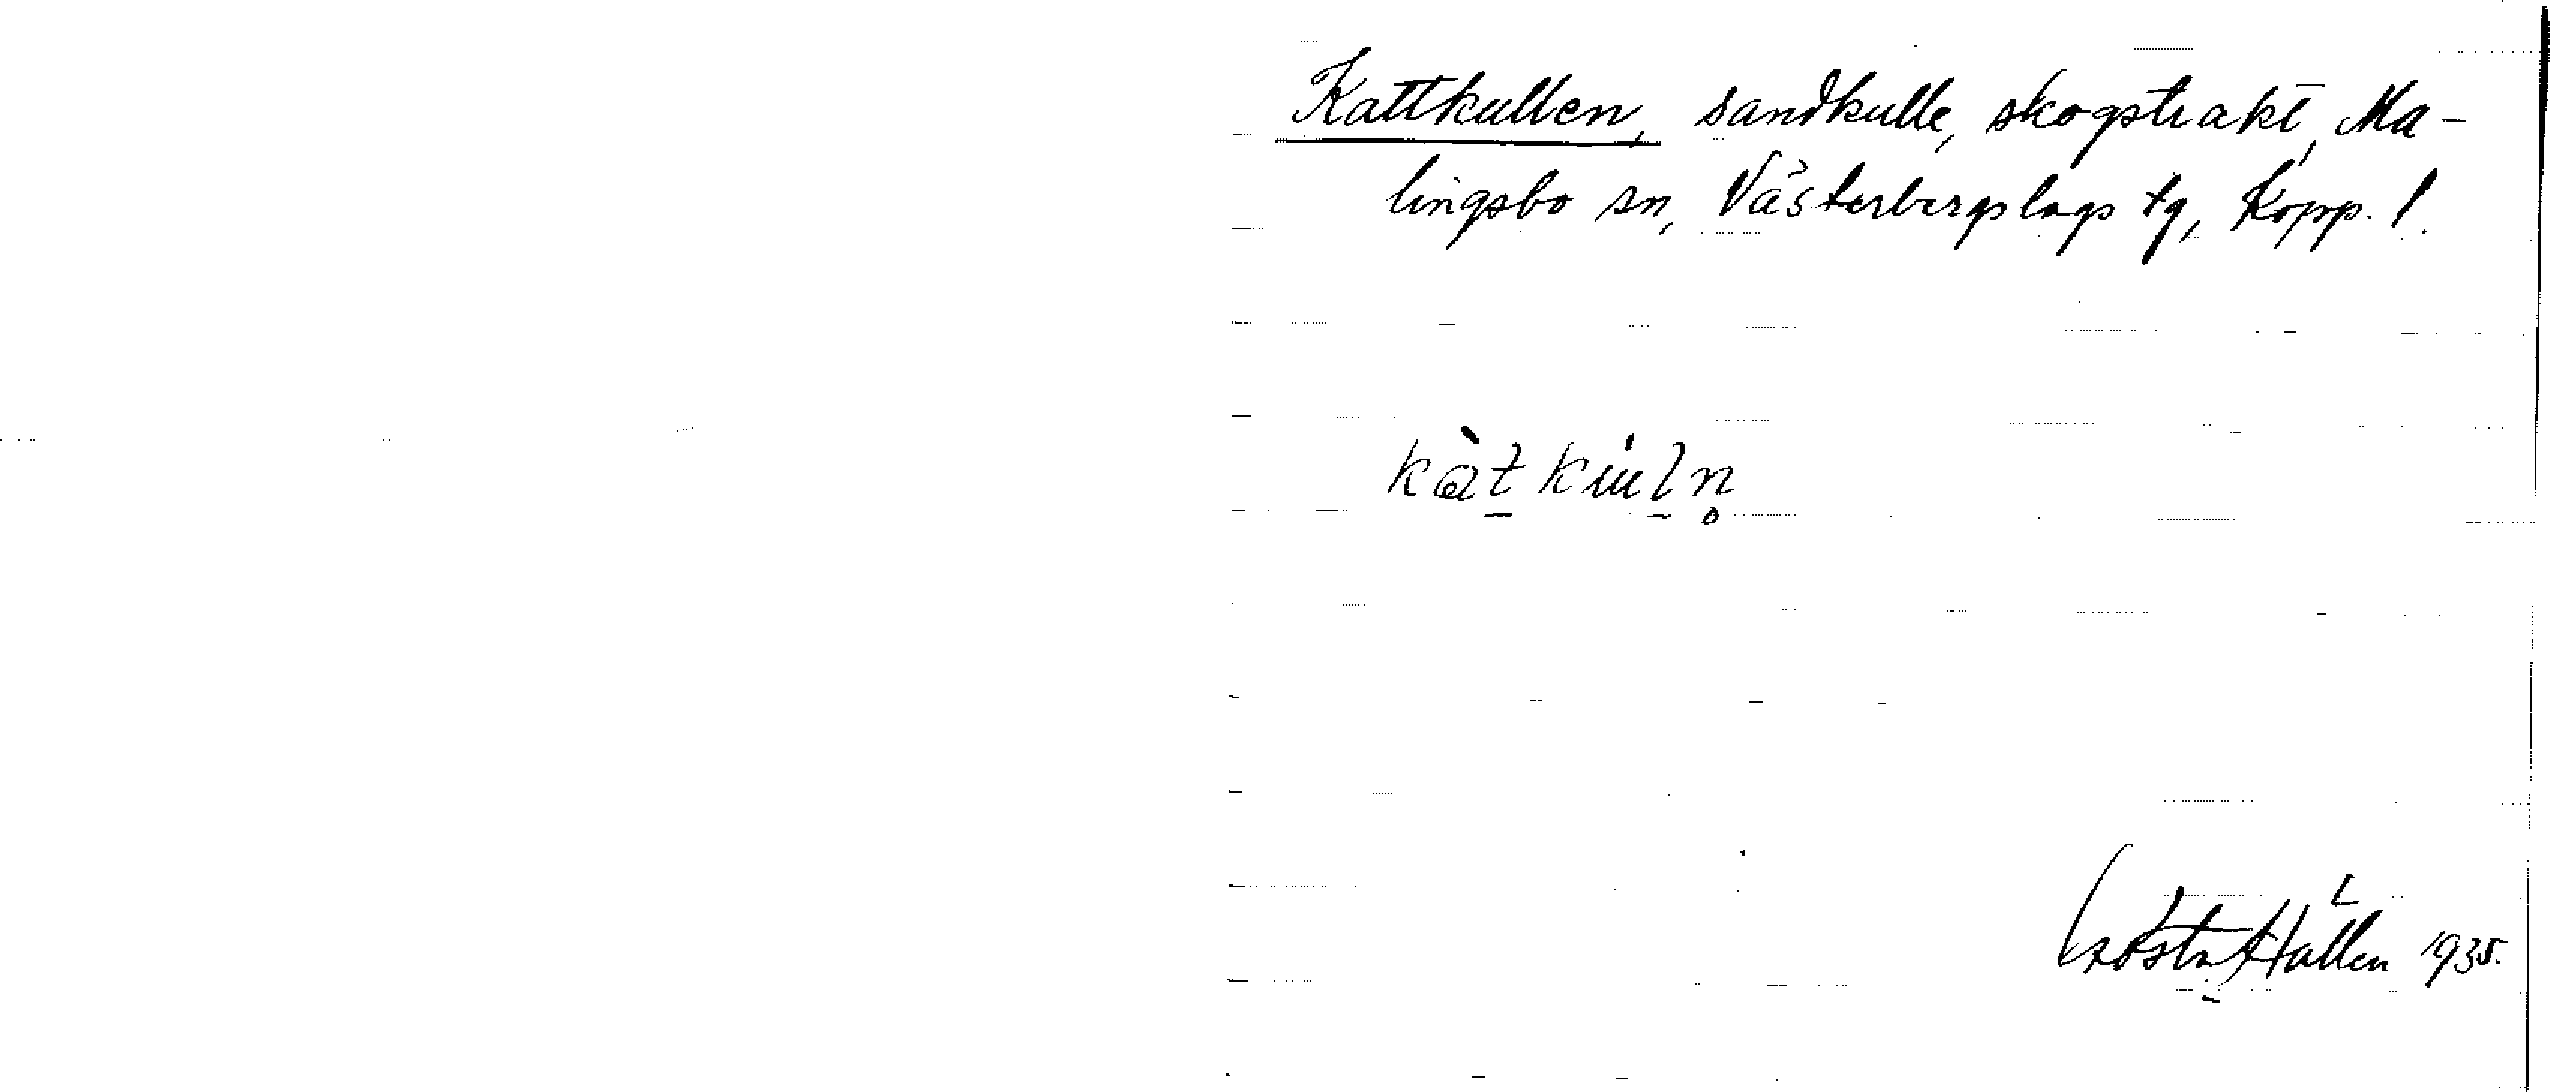 Kattkullen, sandkulle, skogstrakt, Ma-
lingsbo sn, Västerbergslags tg, Kopp. l.
Gösta Hallén 1935.